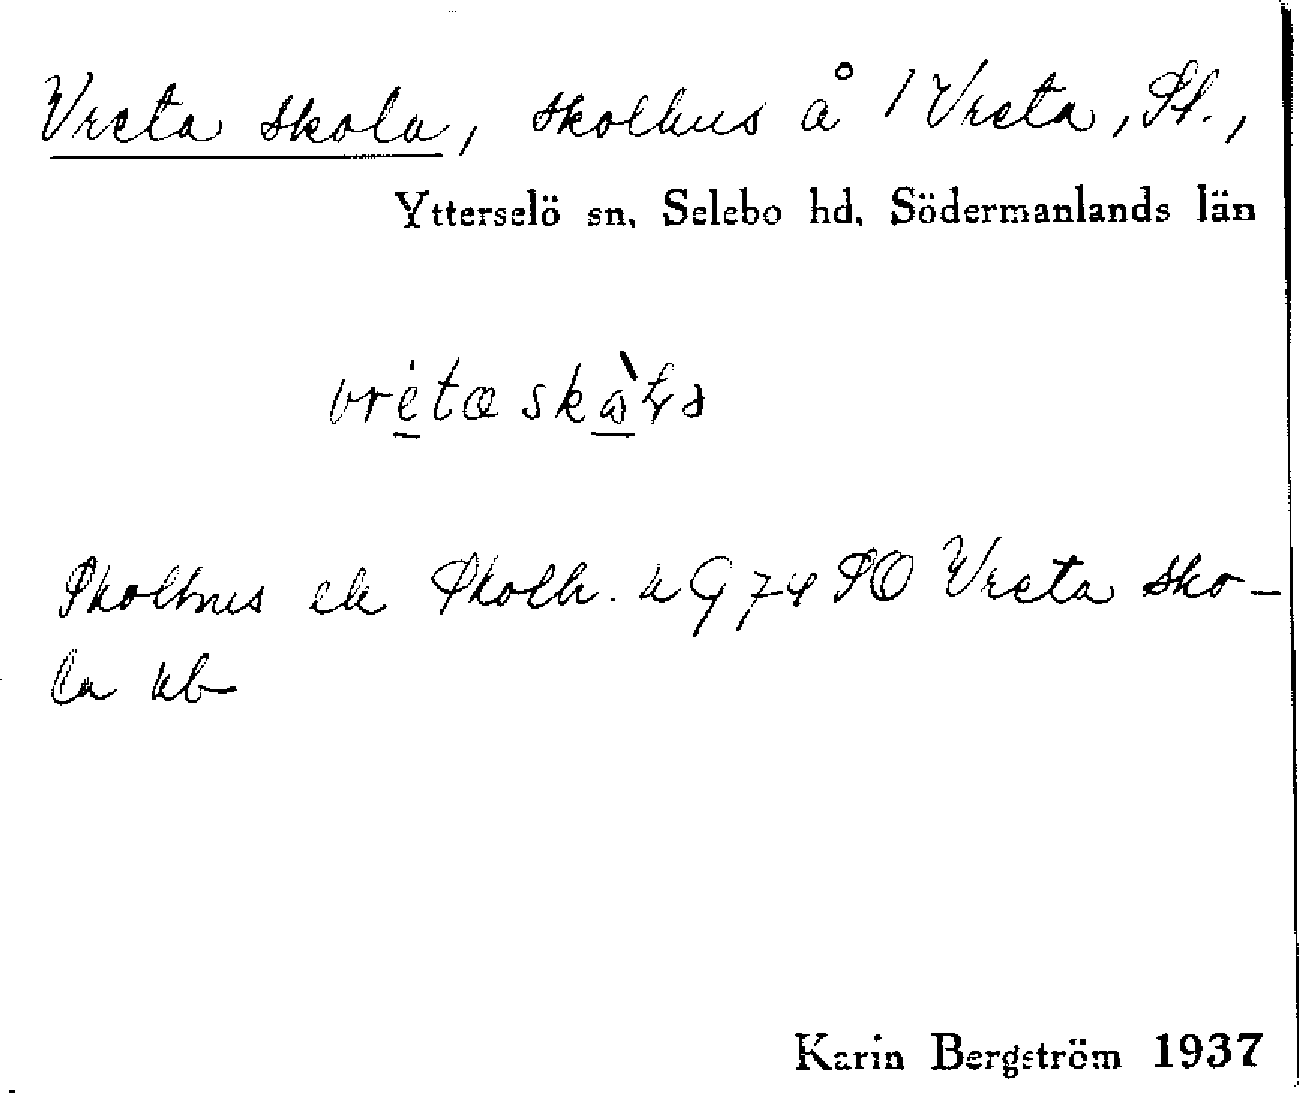 Vreta skola, skolhus å 1 Vreta, St.,
Ytterselö sn, Selebo hd, Södermanlands län
vrétaskàɷ̀ɽa
Skolhus ek Skolh. u G 74 SO Vreta sko-
la ub
Karin Bergström 1937